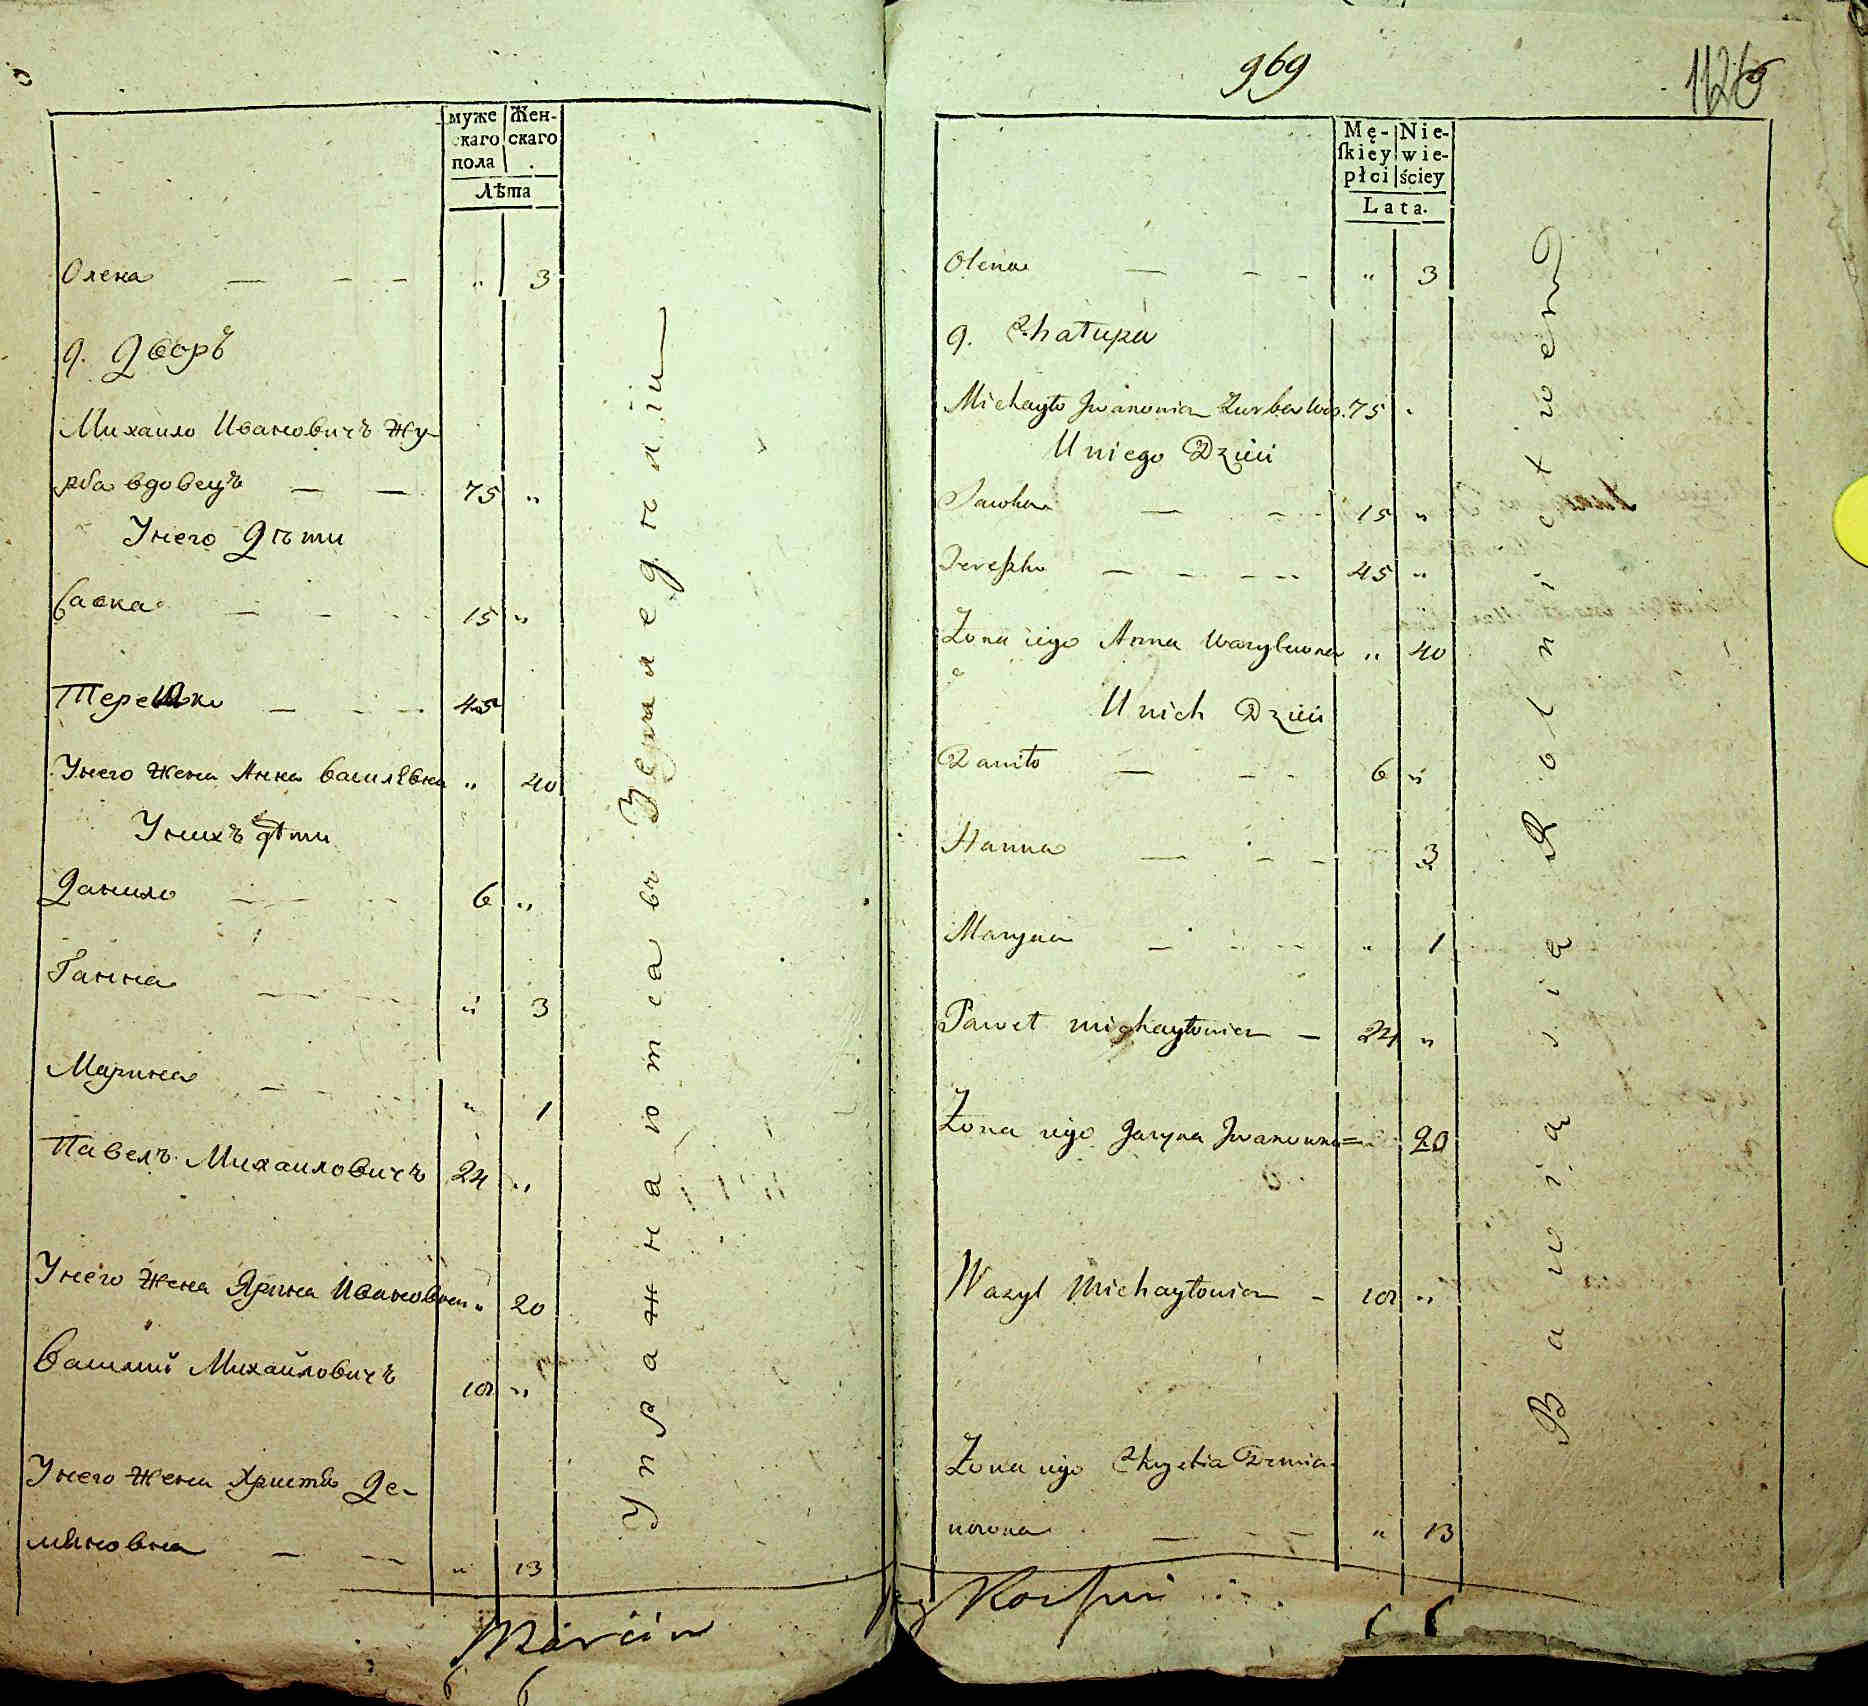 муже
скаго
пола
Жен-
скаго
Лѣта
Олена — — — „ 3
9. Дворъ
Михаило Ивановичъ Жу-
рба вдовецъ — — 75 „
Унего Дѣти
Савка — — — 15 „
Терешко — — — 45
Унего жена Анна Василевна „ 40
Унихъ дѣти
Данило — — — 6 „
Ганна — — — „ 3
Марина — — „ 1
Павелъ Михаиловичъ 24 „
Унего жена Ярина Ивановна „ 20
Василий Михайловичъ 18 „
Унего жена Христя Де-
мяновна — — „ 13
Упражнаются въ Земледѣлiи
Marcin
6 6
969
1126
Mę-
skiey
płci
Nie-
wie-
ściey
Lata.
Olena — — — „ 3
9. Chałupa
Michayło Jwanowicz Zurba wdo. 75 „
U niego Dzieci
Sawka — — — 15 „
Tereszko — — — — 45 „
Żona iego Anna Wasylewna „ 40
U nich Dzieci
Daniło — — — 6 „
Hanna — — — 3
Maryna — — — „ 1
Paweł Michayłowicz — 24 „
Żona iego Jaryna Jwanowna = „ 20
Wasyl Michayłowicz — 18 „
Żona iego Chrystia Demia-
nowna — — — „ 13
Bawią się Rolnictwem
6 6